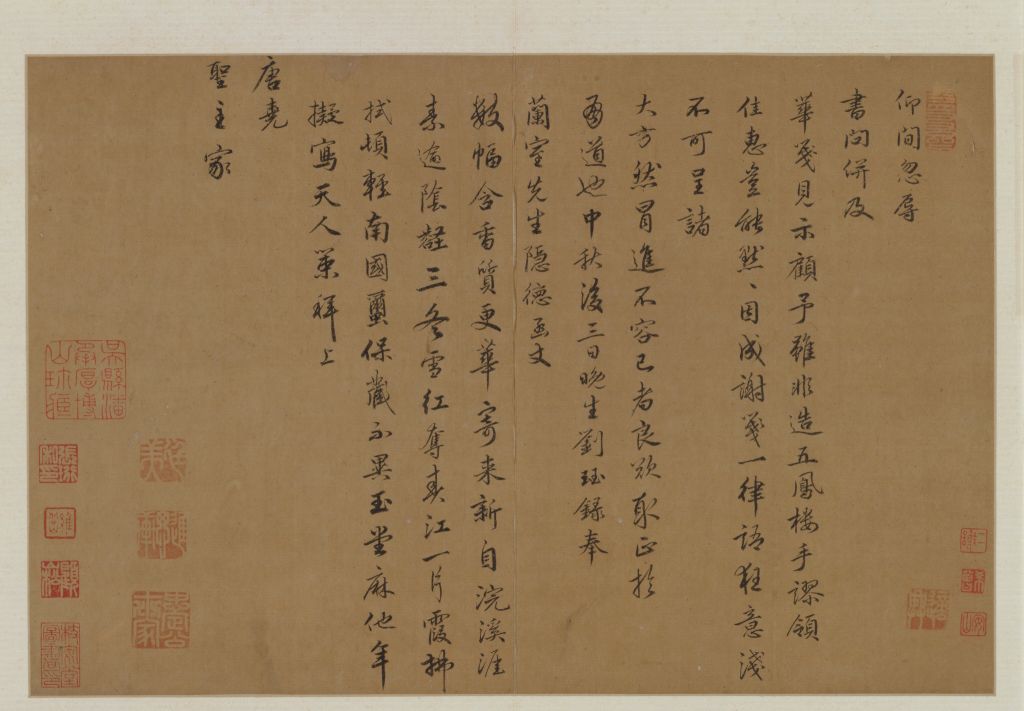 仰間忽辱
書問併及
華箋見示顧予雖非造五鳳樓手謬領
佳惠豈能默、因成謝箋一律語狂意淺
不可呈諸
大方然冒進不容已者良欲取正於
有道也中秋後三日晚生劉珏錄奉
蘭室先生隱德函丈
數幅含香質更華寄來新自浣溪涯
素逾陰壑三冬雪紅奪春江一片霞拂
拭頓輕南國璽保藏不異玉堂麻他年
擬寫天人策拜上
唐堯
聖主家